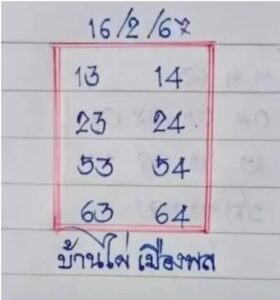 16/2/67
13 14
23 24
53 54
63 64
บ้านไผ่ เมืองพล